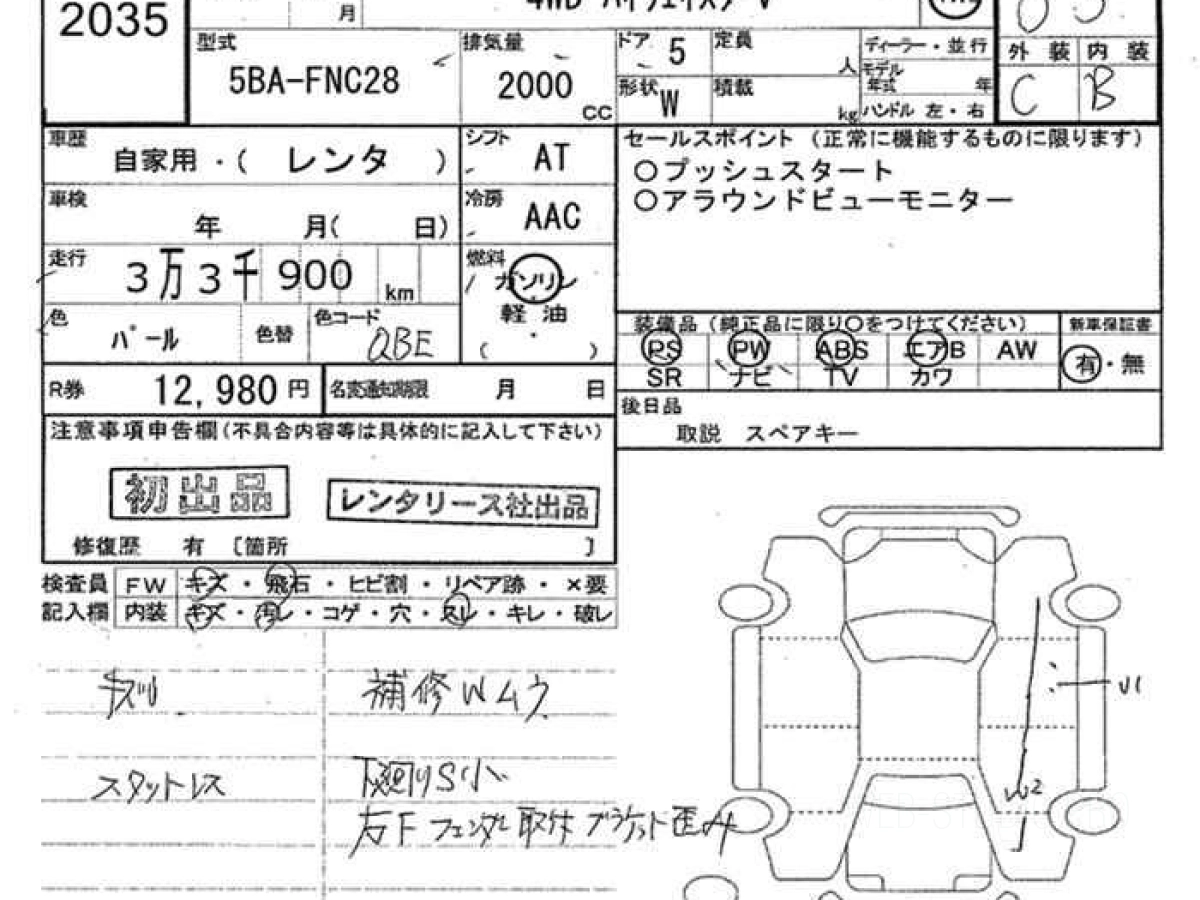 2035
月
4WD ハイウェイスター V
型式
5BA-FNC28
排気量
2000
CC
ドア 5
定員
人
形状 W
積載
kg
ディーラー・並行
モデル年式 年
ハンドル 左・右
外装 内装
C B
車歴
自家用・( レンタ )
シフト
AT
セールスポイント (正常に機能するものに限ります)
○プッシュスタート
○アラウンドビューモニター
車検
年 月( 日)
冷房
AAC
走行
3万3千900 km
燃料
ガソリン
軽・油
( )
色
パール
色替
色コード
QBE
装備品 (純正品に限り○をつけてください)
新車保証書
PS PW ABS エアB AW
SR ナビ TV カワ
有・無
R券 12,980 円
名変通知期限 月 日
後日品
取説 スペアキー
注意事項申告欄(不具合内容等は具体的に記入して下さい)
初出品
レンタリース社出品
修復歴 有 〔箇所 〕
検査員 FW キズ・飛石・ヒビ割・リペア跡・×要
記入欄 内装 キズ・汚レ・コゲ・穴・スレ・キレ・破レ
補修Wムラ
U1
スタットレス
下廻りS小
W2
右Fフェンダー取付ブラケット歪み